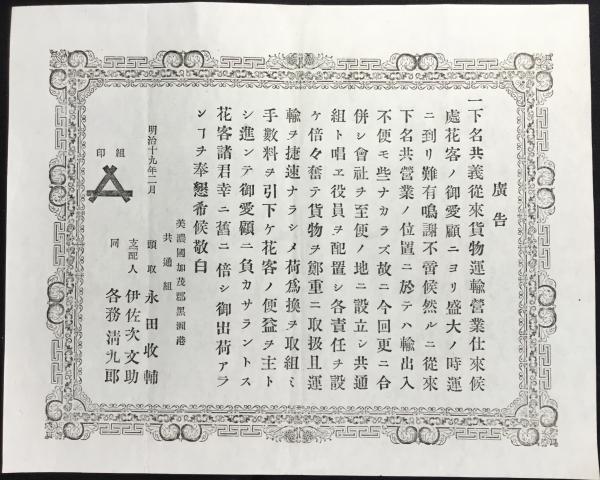 廣告
一下名共義從來貨物運輸營業仕來候
處花客ノ御愛顧ニヨリ盛大ノ時運
ニ到リ難有鳴謝不啻候然ルニ從來
下名共營業ノ位置ニ於テハ輸出入
不便モ些ナカラズ故ニ今回更ニ合
併シ會社ヲ至便ノ地ニ設立シ共通
組ト唱ヱ役員ヲ配置シ各責任ヲ設
ケ倍々奮テ貨物ヲ鄭重ニ取扱且運
輸ヲ捷速ナラシメ荷爲換ヲ取組ミ
手數料ヲ引下ケ花客ノ便益ヲ主ト
シ進ンテ御愛顧ニ負カサラントス
花客諸君幸ニ舊ニ倍シ御出荷アラ
ンヿヲ奉懇希候敬白
美濃國加茂郡黑瀬港
共通組
明治十九年二月
頭取 永田收輔
支配人 伊佐次文助
同 各務淸九郎
組印